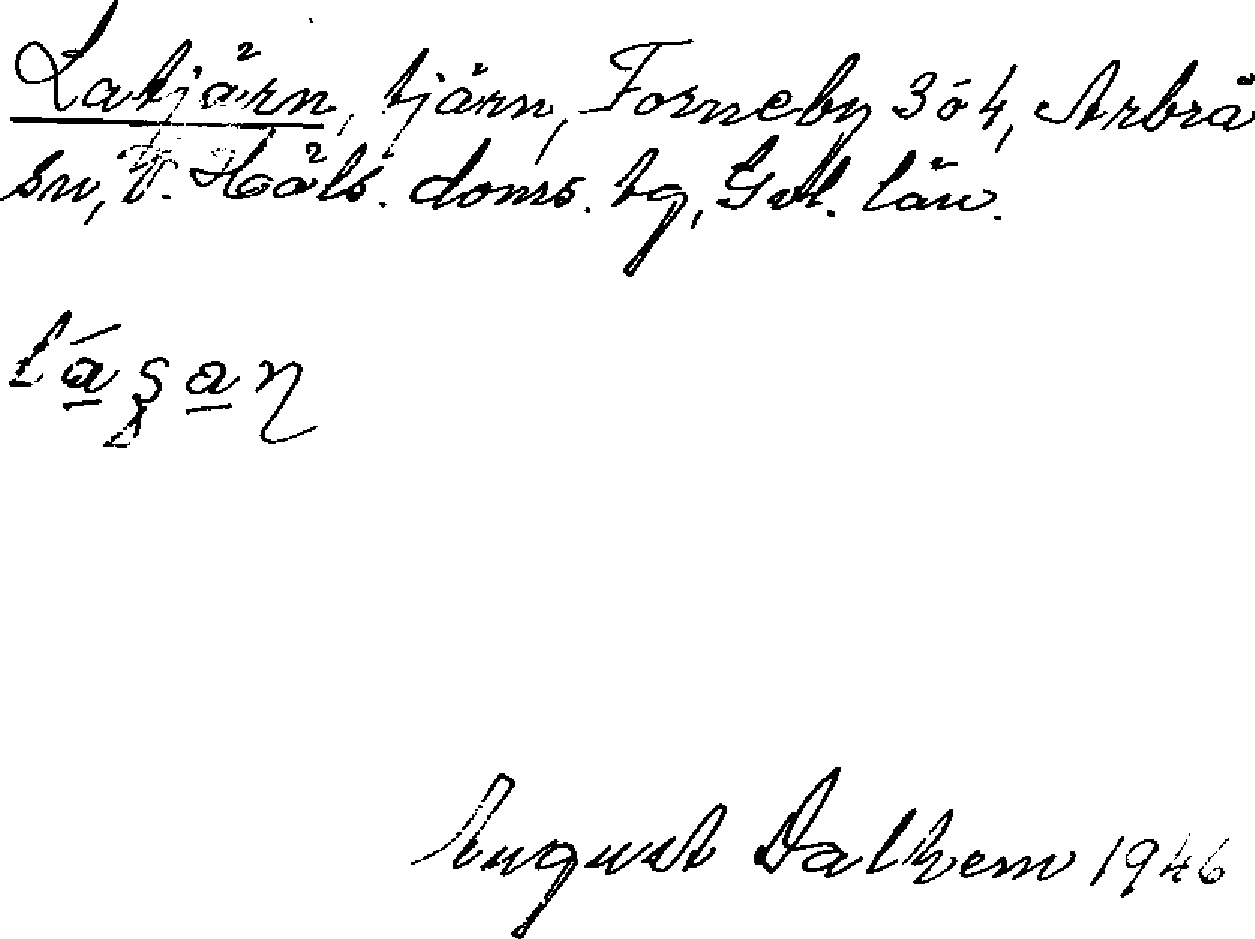 Latjärn, tjärn, Forneby 3 o 4, Arbrå
sn, V. Häls. doms. tg, Gvl. län.
August Dalhem 1946